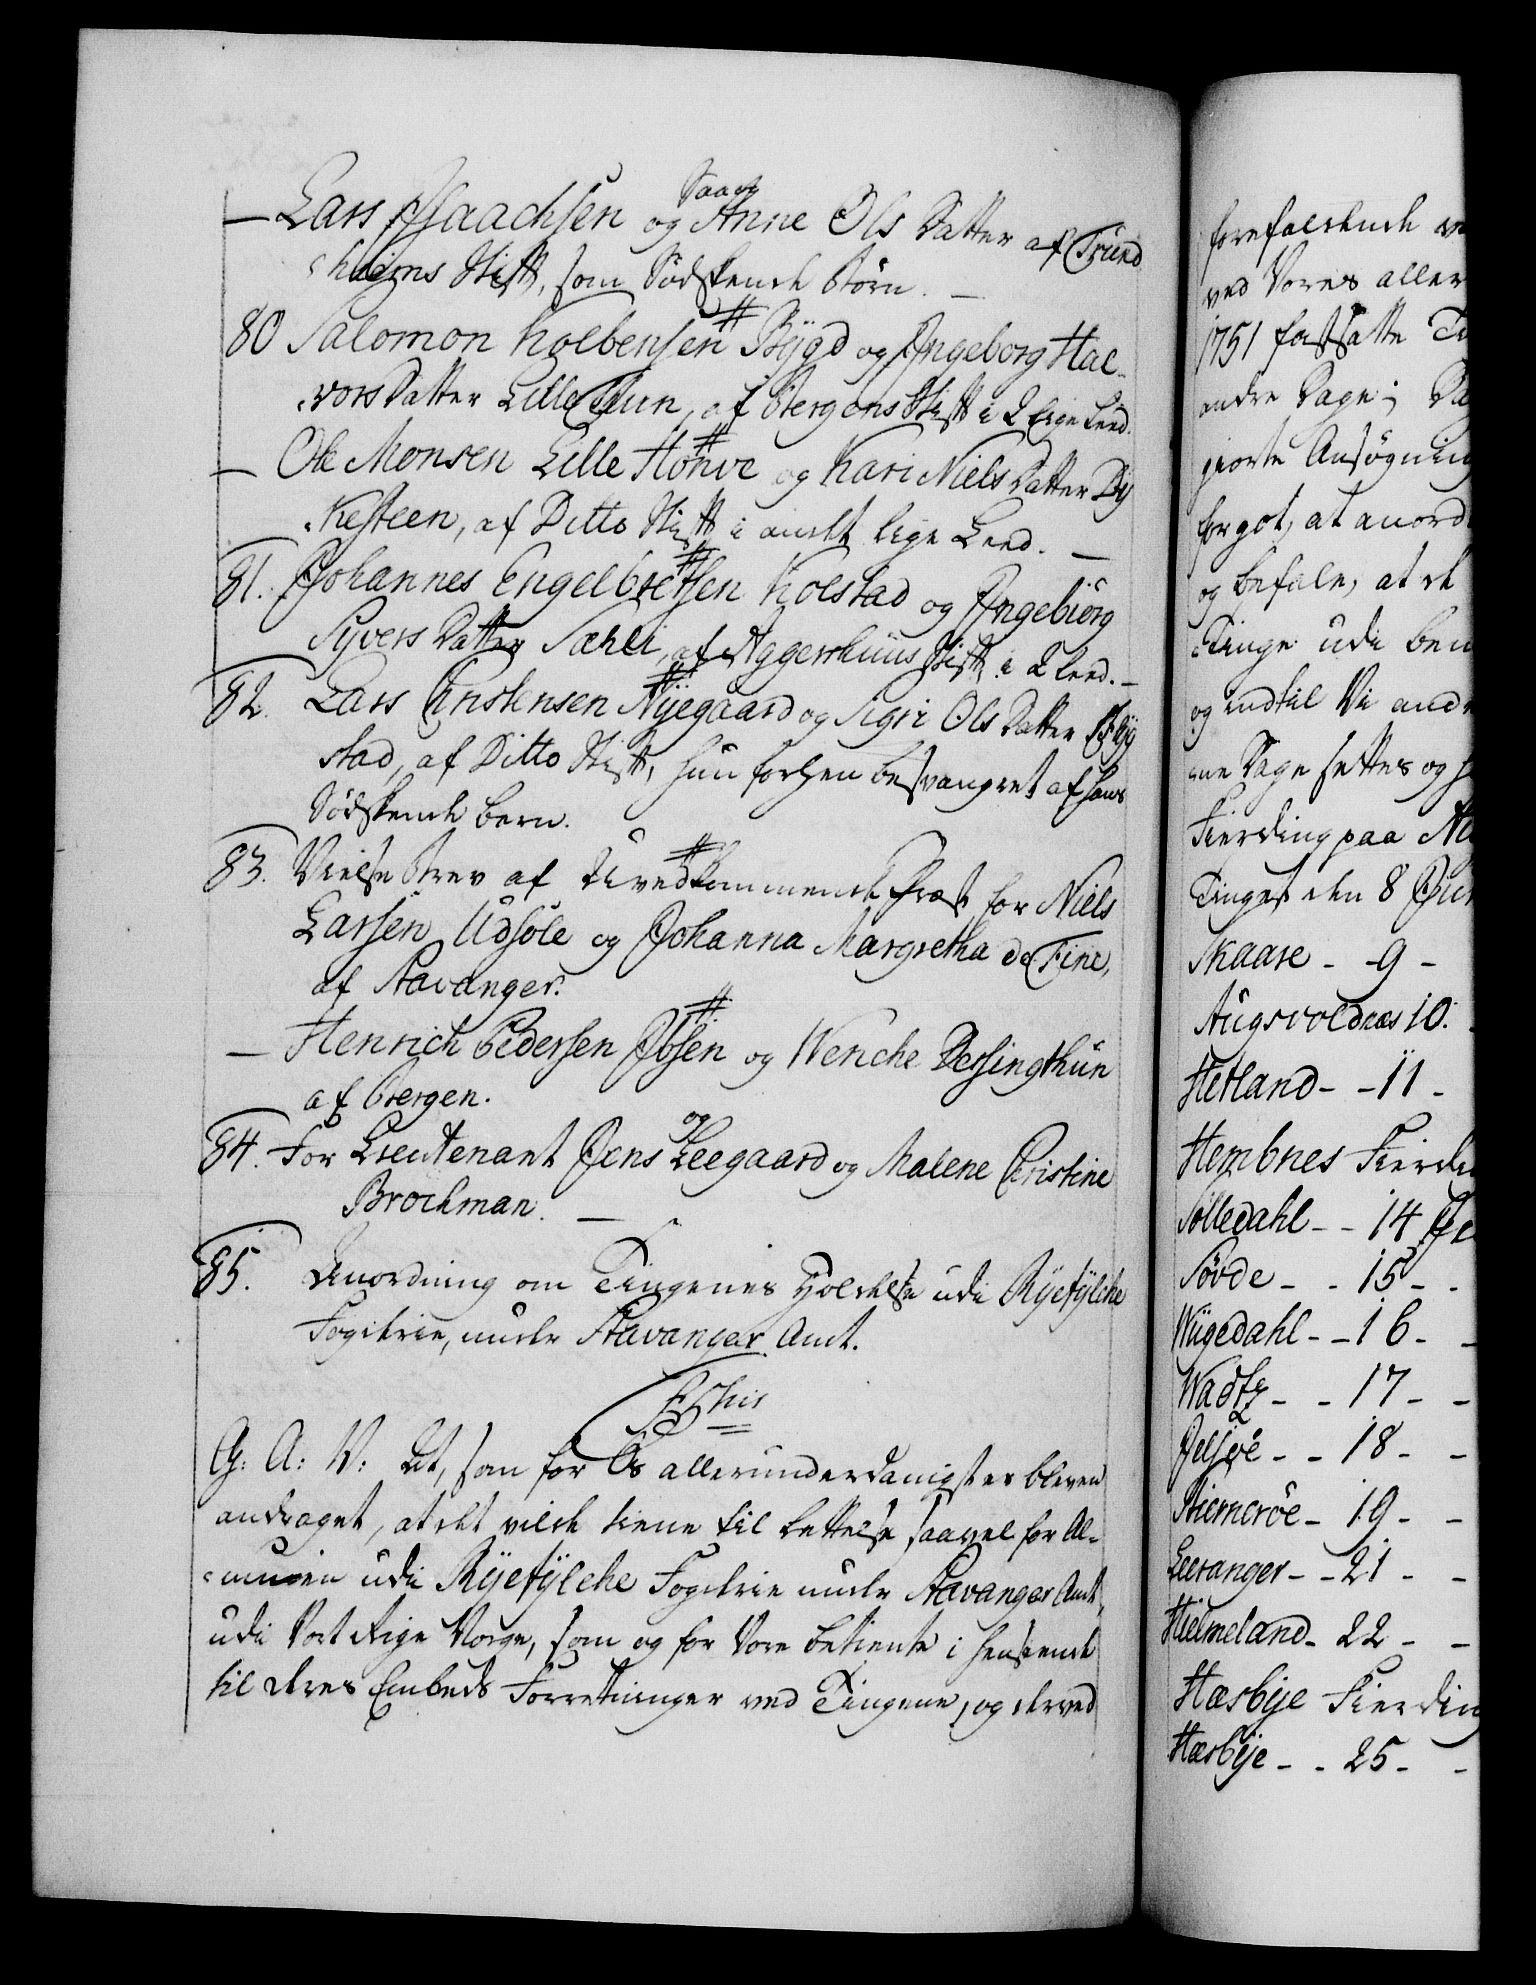 — Lars Isaachsen og Saaog Anne Ols Datter af Trund
heims Stift, som Södskende Börn. —
80 Salomon Kolbensen Bÿgd og Ingeborg Hal-
vors Datter Lille Tun, af Bergens Stift i 2 lige Leed.
— Ole Monsen Lille Hönve og Kari Niels Datter Dÿ
Kesteen, af Ditto Stift i andet lige Leed. —
81. Johannes Engelbretsen Kolstad og Ingebiörg
Syvers Datter Sæhli, af Aggershuus Stift i 2 Leed. —
82. Lars Christensen Nÿegaard og Sigri Ols Datter Bÿ
stad, af Ditto Stift, hun forhen besvangret af hans
Södskende barn.
83. Vielse Brev af Uvedkommende Præst for Niels
Larsen Udsöle og Johanna Margretha de Fine,
af Stavanger.
— Henrich Pedersen Ibsen og Wenche Dessingthun
af Bergen.
84. For Lieutenant Jens og Leegaard og Malene Christine
Brochman. —
85. Anordning om Tingenes Holdelse udi Rÿefÿlche
Fogderie, under Stavanger Amt.
G: A: V: At, som for Os allerunderdanigst er bleven
andraget, at det vilde tiene til Lettelse saavel for Al-
muen udi Rÿefÿlche Fogderie under Stavanger Amt,
udi Vort Rige Norge, som og for Vore betiente i henseende
til deres Embeds Forretninger ved Tingene, og derved
forefaldende
ved Vores aller
1751 fastsatte
andre Dage;
giorte Ansøgning
for got, at anord
og befale, at de
Tinge udi ben
og indtil Vi and
ne Dage settes og
Fierding paa
Tinget den 8
Skaare - 9 -
Augsvoldnæs 10.
Hetland - - 11 -
Hembnes Fierdi
Sölledahl - - 14
Sövde - - 15 - -
Wiigedahl - - 16 - -
Wadtz - - 17 - -
Jelsöe - - 18 - -
Stierneröe - 19 - -
Leeranger - - 21 - -
Hielmeland - 22 - -
Hæsbÿe Fierding
Hæsbÿe - - 25 - -